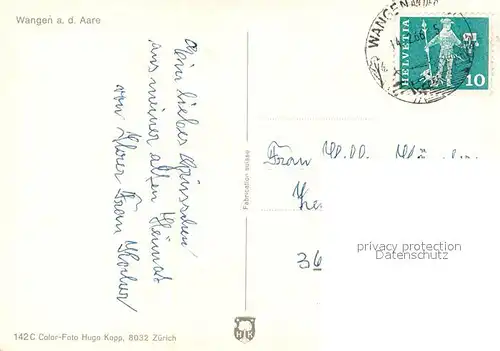 Wangen a. d. Aare
Ein liebes Grüsschen
aus meiner alten Heimat
von Ihrer Frau
142 C Color-Foto Hugo Kopp, 8032 Zürich
Fabrication suisse
HK
WANGEN AN DER
HELVETIA
10
Frau
36
privacy protection
Datenschutz